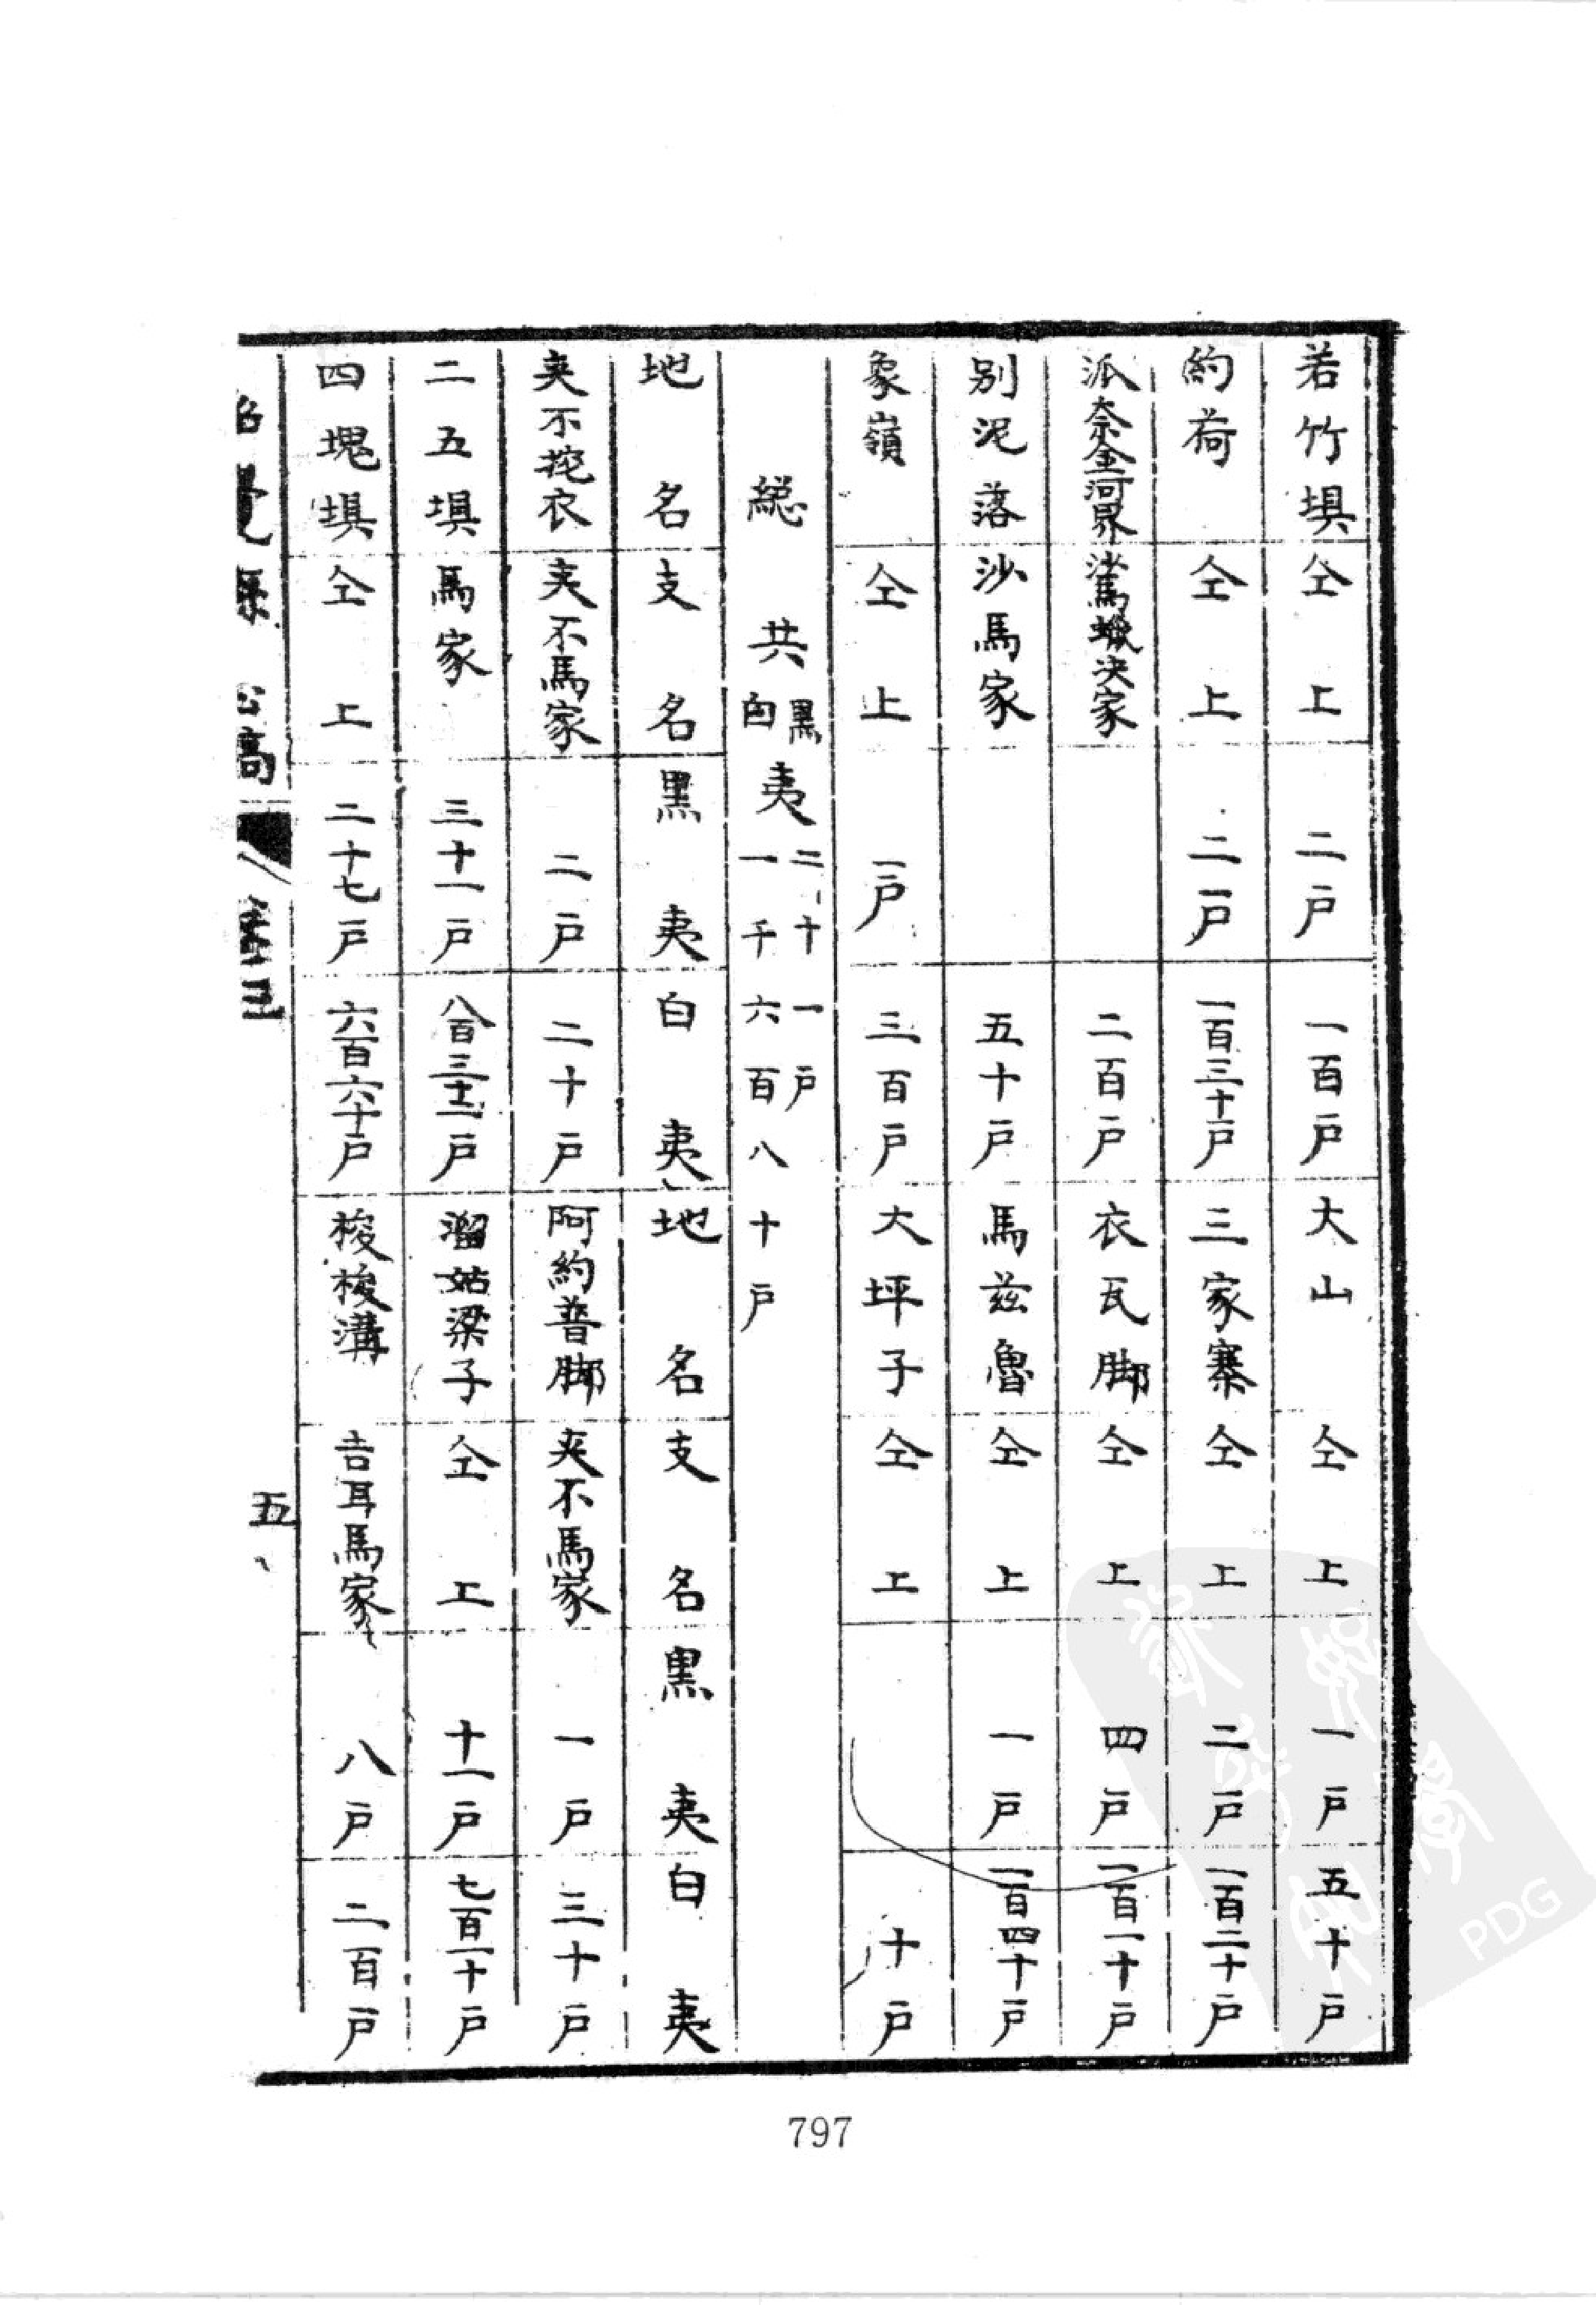 若竹埧 仝上 二戶 一百戶 大山 仝上 一戶 五十戶
約荷 仝上 二戶 一百三十戶 三家寨 仝上 二戶 一百二十戶
派奈金河界 馬蠍决家 二百戶 衣瓦脚 仝上 四戶 一百一十戶
别泥落 沙馬家 五十戶 馬兹魯 仝上 一戶 一百四十戶
象嶺 仝上 一戶 三百戶 大坪子 仝上 十戶
總共黑白夷二十一戶一千六百八十戶
地名 支名 黑夷 白夷 地名 支名 黑夷 白夷
夾不挖衣 夾不馬家 二戶 二十戶 阿約普脚 夾不馬家 一戶 三十戶
二五埧 馬家 三十一戶 八百三十二戶 溜姑梁子 仝上 十一戶 七百一十戶
四塊埧 仝上 二十七戶 六百六十戶 梭梭溝 吉耳馬家 八戶 二百戶
五
797
PDG